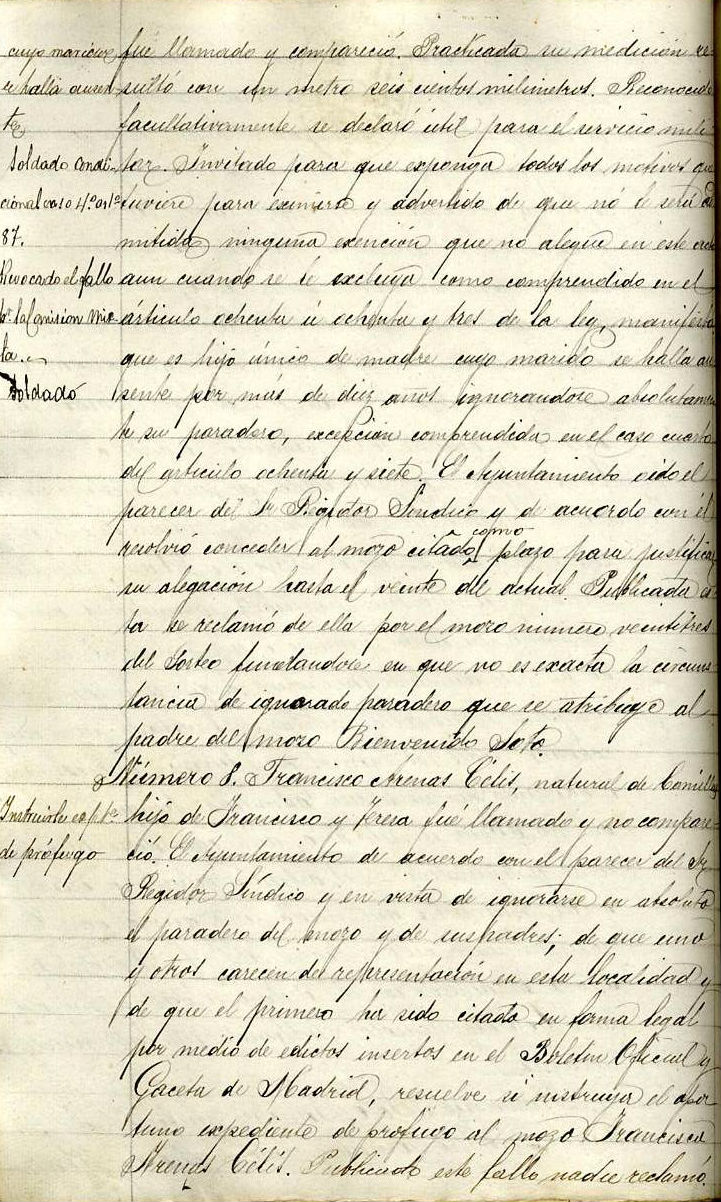 cuyo marido se
e halla ausen
te
Soldado condi-
cional caso 4º art.º
87.
Revocado el fallo
pr. la Comision Mix-
ta.
Soldado
fué llamado y compareció. Practicada su medición re-
sultó con un metro seis cientos milimetros. Reconocido
facultativamente se declaró útil para el servicio mili
tar. Invitado para que exponga todos los motivos que
tuviere para eximirse y advertido de que nó le será ad
mitida ninguna exención que no alegue en este acto
aun cuando se le excluya como comprendido en el
árticulo ochenta ú ochenta y tres de la ley, manifestó
que es hijo único de madre cuyo marido se halla au
sente por más de diez anos ignorandose absolutamen
te su paradero, excepción comprendida en el caso cuarto
del articulo ochenta y siete. El Ayuntamiento oido el
parecer del Sr Regidor Síndico y de acuerdo con el
resolvió conceder al mozo citado como plazo para justificar
su alegación hasta el veinte del actual. Publicada es
ta se reclamó de ella por el mozo numero veintitres
del sorteo fundandose en que no es exacta la circuns
tancia de ignorado paradero que se atribuye al
padre del mozo Bienvenido Soto.
Instruirle expte.
de prófugo
Número 8. Francisco Arenas Célis, natural de Comillas
hijo de Francisco y Teresa fué llamado y no compare-
ció. El Ayuntamiento de acuerdo con el parecer del Sr
Regidor Síndico y en vista de ignorarse en absoluto
el paradero del mozo y de sus padres; de que uno
y otros carecen de representación en esta localidad y
de que el primero ha sido citado en forma legal
por medio de edictos insertos en el Boletin Oficial y
Gaceta de Madrid, resuelve se instruya el opor
tuno expediente de prófugo al mozo Francisco
Arenas Célis. Publicado este fallo nadie reclamó.